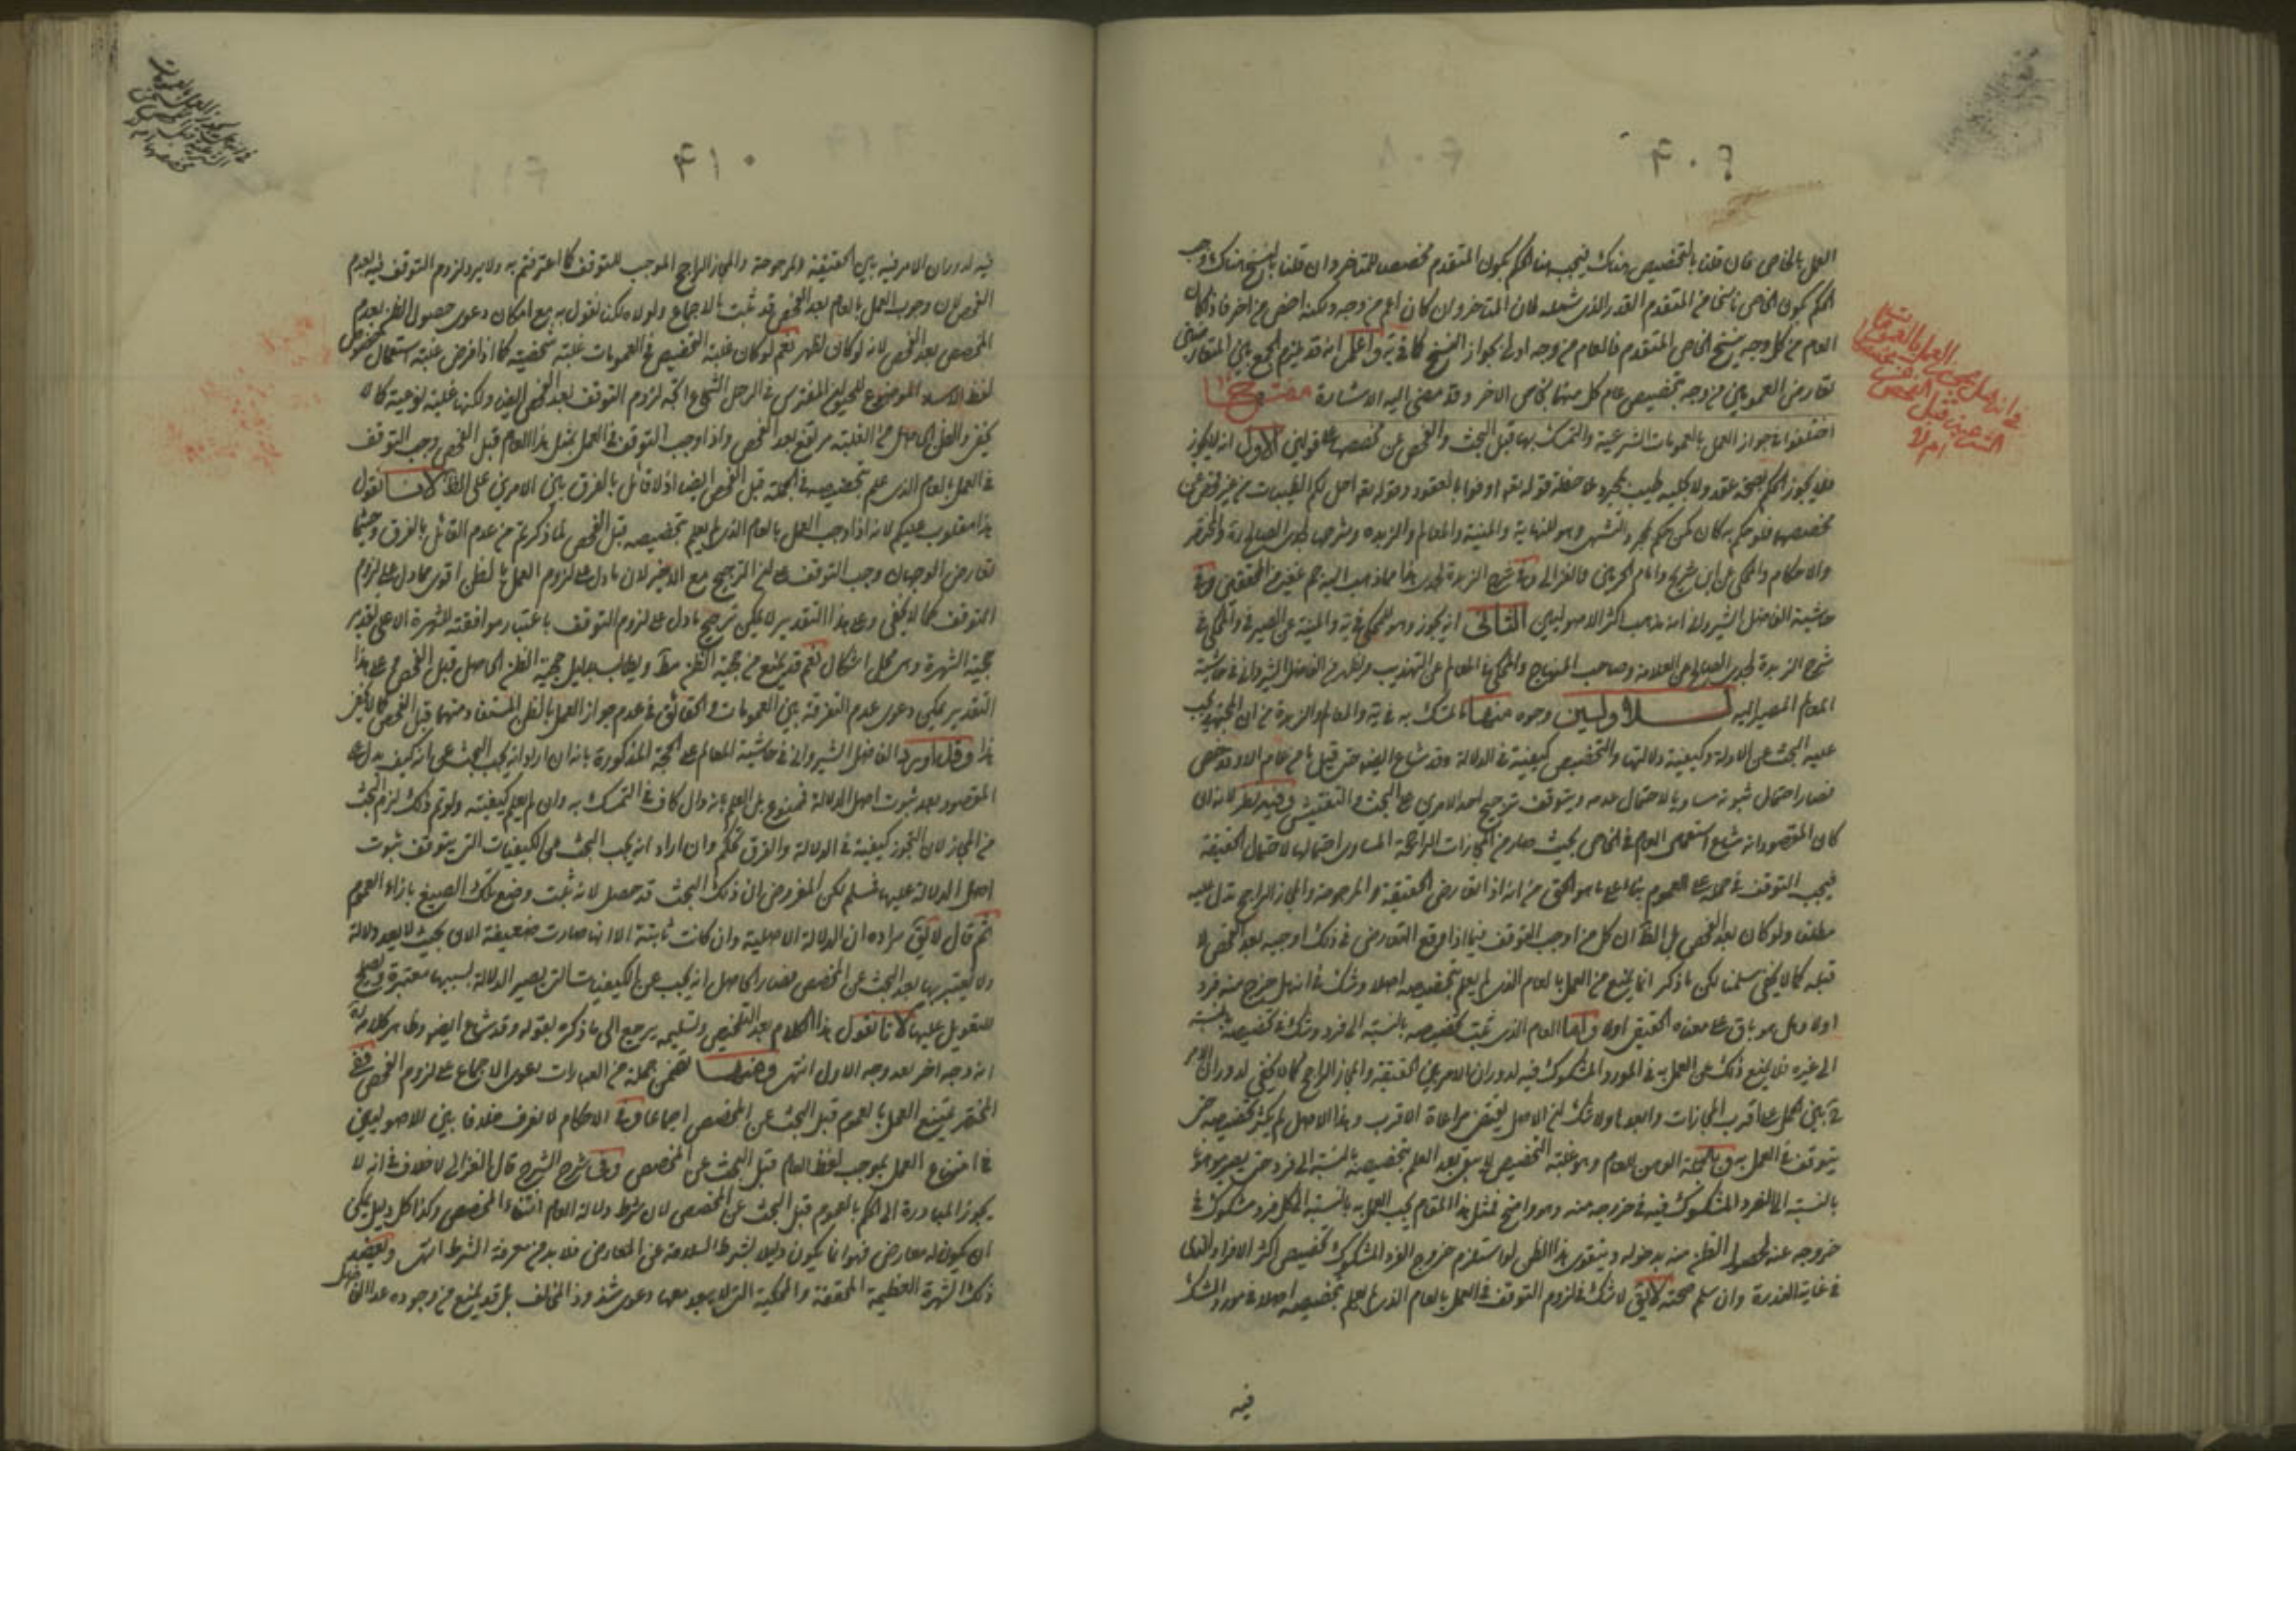 ٤٠٩
العمل بالخاص فان قلنا بالتخصيص هناك فيجب هنا الحكم بكون المتقدم مخصصا للمتاخر وان قلنا بالنسخ هناك وجب
الحكم بكون الخاص ناسخا من المتقدم القدر الذي شمله فان المتاخر وان كان اعم من وجه ولكنه اخص من اخر فاذا كان
العام من كل وجه ينسخ الخاص المتقدم فالعام من وجه اولى بجواز النسخ كما في ية واعلم انه قد يلزم الجمع بين المتعارضين
تعارض العمومين من وجه بتخصيص عام كل منهما بخاص الاخر وقد مضى اليه الاشارة مفتاح
اختلفوا في جواز العمل بالعمومات الشرعية والتمسك بها قبل البحث والفحص عن مخصصها على قولين الاول انه لا يجوز
فلا يجوز الحكم بصحة عقد ولا بحلية طيب بمجرد ملاحظة قوله تعه اوفوا بالعقود وقوله تعه احل لكم الطيبات من غير فحص عن
مخصصها فلو حكم به كان كمن حكم بمجرد التشهي وهو للنهاية والمنية والمعالم والزبدة وشرحها لجدي الصالح ره والمختصر
والاحكام والمحكي عن ابن شريح وامام الحرمين والغزالي وفي شرح الزبدة لجدي هذا مما ذهب اليه جم غفير من المحققين وفي
حاشية الفاضل الشيرواني انه مذهب اكثر الاصوليين الثاني انه يجوز وهو للمحكي في ية والمنية عن الصيرفي والمحكي في
شرح الزبدة لجدي الصالح عن العلامة وصاحب المنهاج والمحكي في المعالم عن التهذيب ويظهر من الفاضل الشيرواني في حاشية
المعالم المصير اليه للاولين وجوه منها ما تمسك به في ية والمعالم والزبدة من ان المجتهد يجب
عليه البحث عن الادلة وكيفية دلالتها والتخصيص كيفية في الدلالة وقد شاع ايضا حتى قيل ما من عام الا وقد خص
فصار احتمال ثبوته مساويا لاحتمال عدمه ويتوقف ترجيح احد الامرين على البحث والتفتيش وفيه نظر لانه ان
كان المقصود انه شاع استعمال العام في الخاص بحيث صار من المجازات الراجحة المساوي احتمالها لاحتمال الحقيقة
فيجب التوقف في حمله على العموم بناء على ما هو الحق من انه اذا تعارض الحقيقة والمرجوحة والمجاز الراجح يدل عليه
مطلقا ولو كان بعد الفحص بل الظ ان كل من اوجب التوقف فيما اذا وقع التعارض في ذلك اوجبه بعد الفحص لا
قبله كما لا يخفى سلمنا لكن ما ذكر انما يمنع من العمل بالعام الذي لم يعلم بتخصيصه اصلا وشك في انه هل خرج منه فرد
اولا وهل هو باق على معناه الحقيقي اولا واما العام الذي ثبت تخصيصه بالنسبة الى فرد وشك في تخصيصه بالنسبة
الى غيره فلا يمنع ذلك من العمل به في المورد المشكوك فيه لدوران الامر بين الحقيقة والمجاز الراجح كما لا يخفى لدوران الامر
ح بين الحمل على اقرب المجازات وابعدها ولا شك ان الاصل يقتضي مراعاة الاقرب وهذا الاصل لم يكثر تخصيصه حتى
يتوقف في العمل به وبالجملة الوهن للعام وهو غلبة التخصيص لا يبقى بعد العلم بتخصيصه بالنسبة الى فرد حتى يصير موهونا
بالنسبة الى الفرد المشكوك فيه في خروجه منه وهو واضح فمثل هذا المقام يجب العمل به بالنسبة الى كل فرد مشكوك في
خروجه عنه لحصول الظن منه بدخوله ويتقوى هذا الظن لو استلزم خروج الفرد المشكوك تخصيص اكثر الافراد
في غاية الندرة وان سلم صحته لا يق لا شك في لزوم التوقف في العمل بالعام الذي لم يعلم بتخصيصه اصلا في مورد الشك
فيه
في انه هل يجوز العمل بالعمومات قبل الفحص ام لا
٤١٠
فيه لدوران الامر فيه بين الحقيقة والمرجوحة والمجاز الراجح الموجب للتوقف كما اعترفتم به ولا يرد لزوم التوقف فيه بعدم
الفحص لان وجوب العمل بالعام بعد الفحص قد ثبت بالاجماع ولولاه لكنا نقول به مع امكان دعوى حصول الظن بعدم
المخصص بعد الفحص لانه لو كان لظهر نعم لو كان غلبة التخصيص في العمومات غلبة شخصية كما اذا فرض غلبة استعمال خصوص
لفظ الاسد الموضوع للحيوان المفترس في الرجل الشجاع اتجه لزوم التوقف بعد الفحص ايضا ولكنها غلبة نوعية كما لا
يخفى والظن الحاصل من الغلبة مرتفع بعد الفحص واذا وجب التوقف في العمل بمثل هذا العام قبل الفحص وجب التوقف
في العمل بالعام الذي علم تخصيصه في الجملة قبل الفحص ايضا اذ لا قائل بالفرق بين الامرين على الظ لانا نقول
هذا مقلوب عليكم لانه اذا وجب العمل بالعام الذي لم يعلم بتخصيصه قبل الفحص لما ذكرتم من عدم القائل بالفرق وحيثما
تعارض الوجهان وجب التوقف على ان الترجيح مع الاخير لان ما دل على لزوم العمل بالظن اقوى مما دل على لزوم
التوقف كما لا يخفى وعلى هذا التقدير لا يمكن ترجيح ما دل على لزوم التوقف باعتبار موافقته للشهرة الا على تقدير
حجية الشهرة وهي محل اشكال نعم قد يمنع من حجية الظن مط ويطالب بدليل حجية الظن الحاصل قبل الفحص فعلى هذا
التقدير يمكن دعوى عدم التفرقة بين العمومات والحقائق في عدم جواز العمل بالظن المستفاد منهما قبل الفحص كما لا يخفى
هذا وقد اورد الفاضل الشيرواني في حاشية المعالم على الحجة المذكورة بانه ان اراد انه يجب البحث عن انه كيف يدل على
المقصود بعد ثبوت اصل الدلالة فممنوع بل العلم بانه دال كاف في التمسك به وان لم يعلم كيفيته ولو تم ذلك لزم البحث
من المجاز لان التجوز كيفية في الدلالة والفرق تحكم وان اراد انه يجب البحث عن الكيفيات التي يتوقف ثبوت
اصل الدلالة عليها فمسلم لكن المفروض ان ذلك البحث قد حصل لانه ثبت وضع تلك الصيغ بازاء العموم
ثم قال لا يق مراده ان الدلالة الاصلية وان كانت ثابتة الا انها صارت ضعيفة الان بحيث لا يعد دلالة
ولا يعتبر بها بعد البحث عن المخصص فصار الحاصل انه يجب عن الكيفيات التي يصير الدلالة بسببها معتبرة ويصلح
للتعويل عليها لانا نقول هذا الكلام بعد التلخيص وتسليمه يرجع الى ما ذكره بقوله وقد شاع ايضا وظاهر كلامه
انه وجه اخر بعد وجه الاول انتهى ومنها تضمن جملة من العبارات دعوى الاجماع على لزوم الفحص ففي
المختصر يمتنع العمل بالعموم قبل البحث عن المخصص اجماعا وفي الاحكام لا نعرف خلافا بين الاصوليين
في امتناع العمل بموجب لفظ العام قبل البحث عن المخصص وفي شرح الشرح قال الغزالي لا خلاف في انه لا
يجوز المبادرة الى الحكم بالعموم قبل البحث عن المخصص لان شرط دلالة العام انتفاء المخصص وكذا كل دليل يمكن
ان يكون له معارض فهو انما يكون دليلا بشرط السلامة عن المعارض فلا بد من معرفة الشرط انتهى ويعضد
ذلك الشهرة العظيمة المحققة والمحكية التي لا يبعد معها دعوى شذوذ المخالف بل قد يمنع من وجوده عدا الفاضل